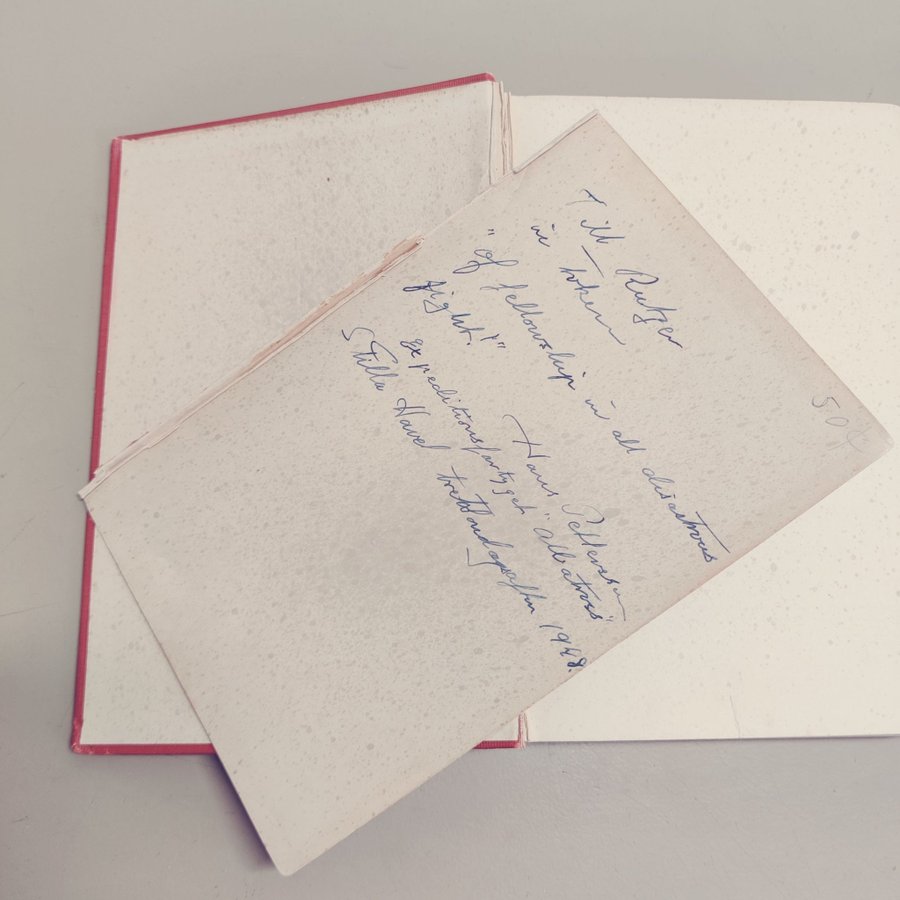 Till Rutger
in token
"of fellowship in all disastrous
fight!"
Hans Pettersson
Expeditionsfartyget "Albatross"
Stilla Havet trettondagsafton 1948.
50:-